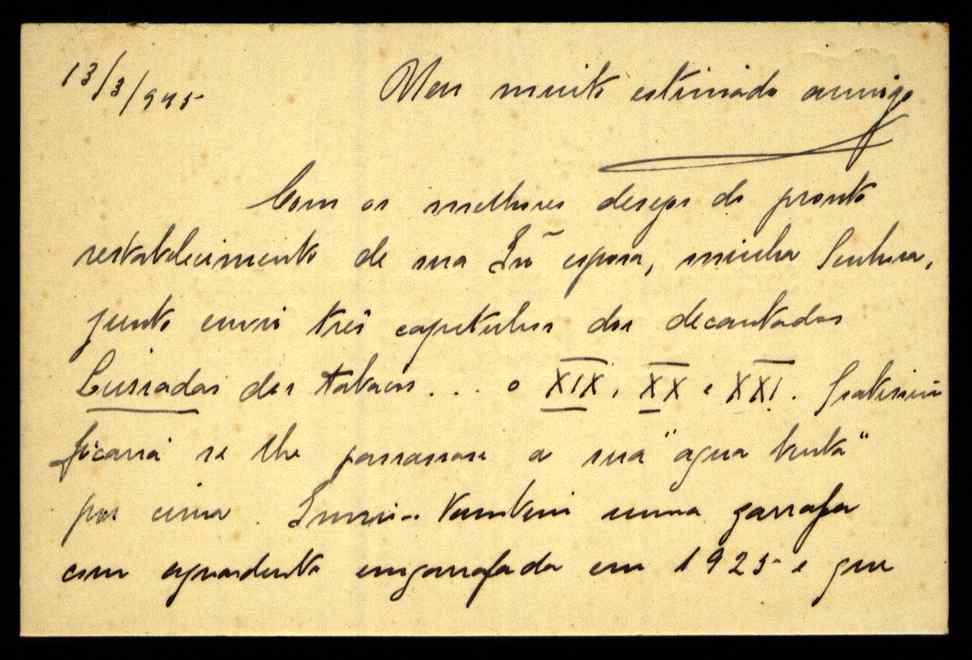 13/3/945
Meu muito estimado amigo
Com os melhores desejos do pronto
restabelecimento de sua Srª esposa, minha Senhora,
junto envio três capitulos dos decantados
dos tabacos... o XIX, XX e XXI. Gratissimo
ficaria se lhe passasse a sua "agua benta"
por cima. Envio-lhe tambem uma garrafa
com aguardente engarrafada em 1925 e que